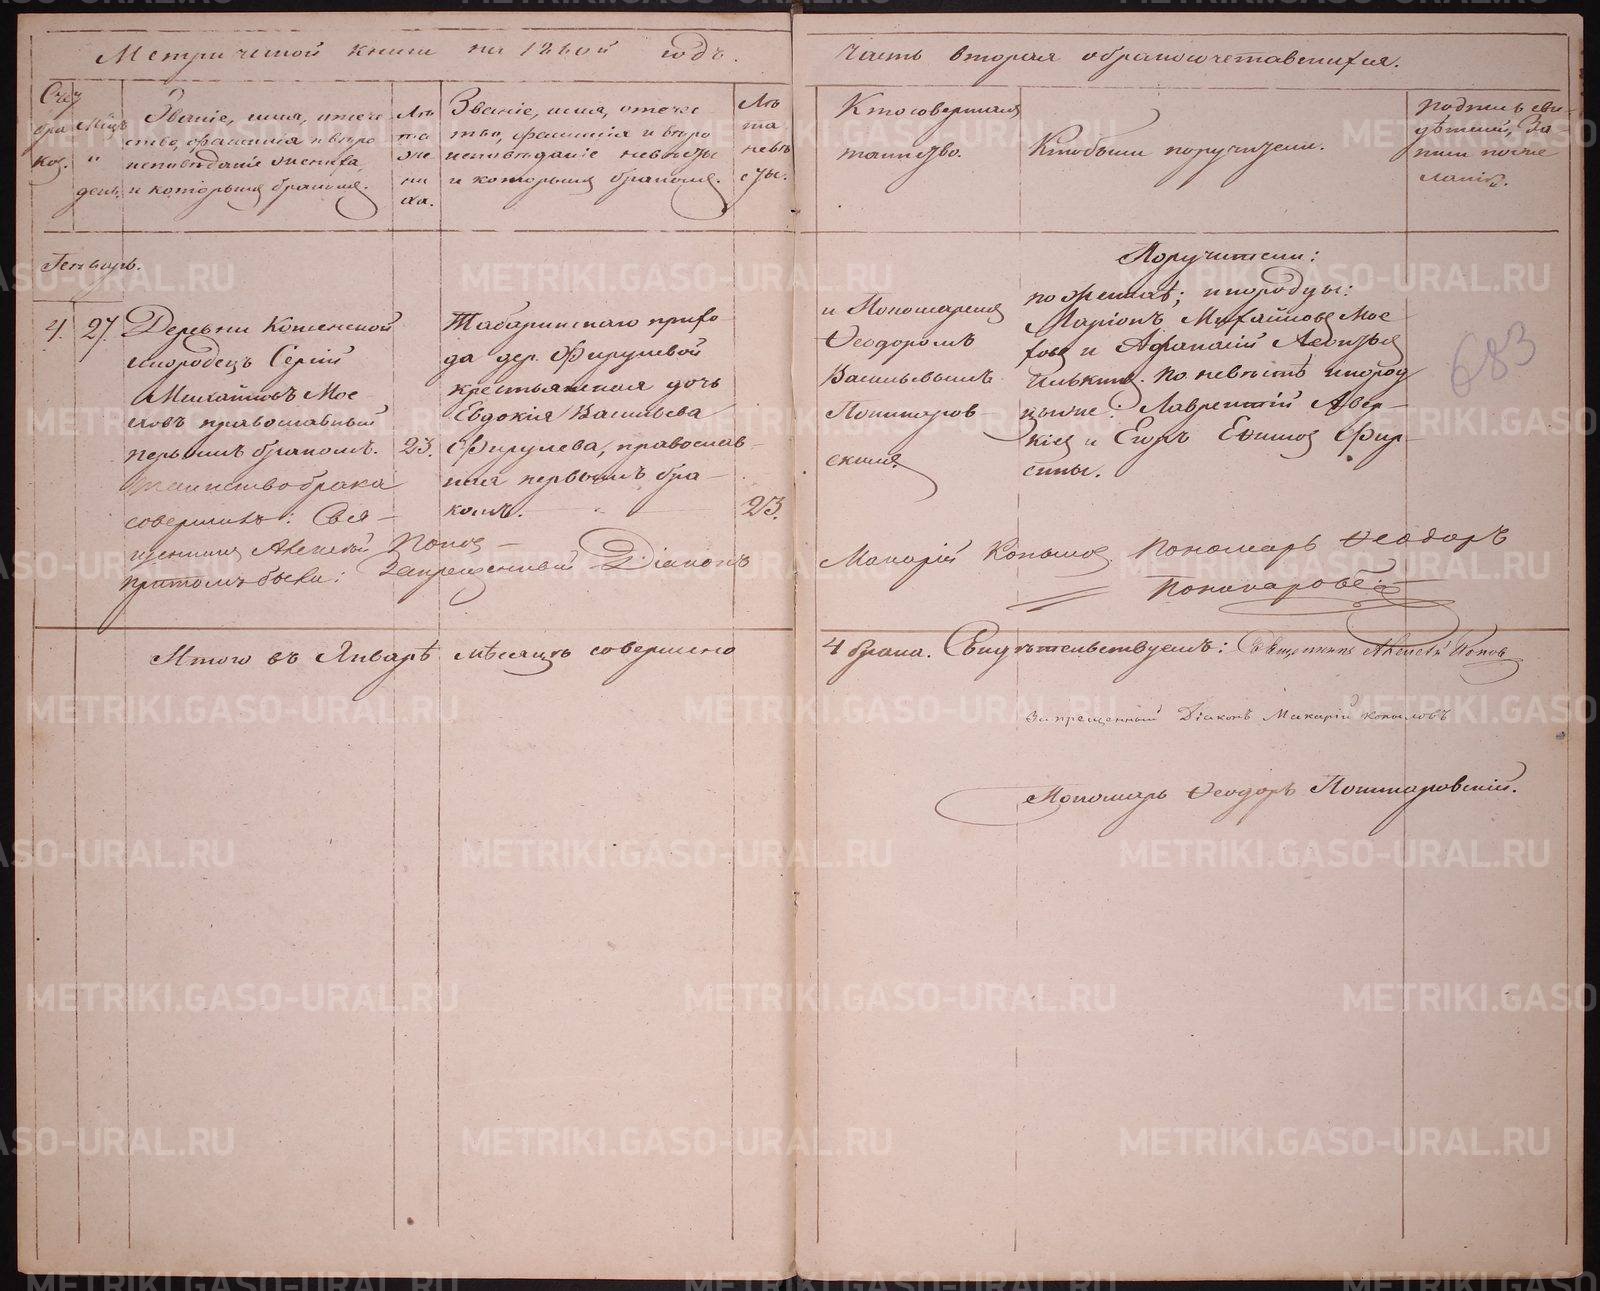 Метрической книги на 1860й годъ.
Часть вторая о бракосочетавшихся.
Счетъ
бра
ков.
Мѣцъ
и
день.
Званіе, имя, отече
ство, фамилія и вѣро
исповѣданіе жениха,
и которымъ бракомъ.
Лѣ
та
же
ни
ха.
Званіе, имя, отече
ство, фамилія и вѣро
исповѣданіе невѣсты
и которымъ бракомъ.
Лѣ
та
невѣ
сты.
Кто совершалъ
таинство.
Кто были поручители.
Подпись сви-
дѣтелей, за-
писи по же
ланію.
Генварь.
4. 27.
Деревни
инородецъ Сергій
Михайловъ Мос
ловъ православный
первымъ бракомъ.
Таинство брака
совершилъ: Свя-
щенникъ Алексѣй Попов
притомъ были: Запрещенный Діаконъ
23.
Табаринскаго прихо
да дер. Фирулевой
крестьянская дочь
Евдокія Васильева
Фирулева, православ-
ная первымъ бра-
комъ.
23.
и Пономаремъ
Ѳеодоромъ
Васильевымъ
скимъ
Поручители:
по женихѣ; инородцы:
Маріонъ Михайловъ Мос
ловъ и Афанасій Леонтьевъ
по невѣстѣ инород
Лаврентій Авер-
кіев и Егоръ Фир-
сины.
Макарій Копылов Пономарь Ѳеодоръ
Итого въ Январѣ мѣсяцѣ совершено
4 брака. Свидѣтельствуемъ: Священникъ Алексѣй Попов
Запрещенный Діаконъ Макарій Копыловъ
Пономарь Ѳеодоръ
683
METRIKI.GASO-URAL.RU